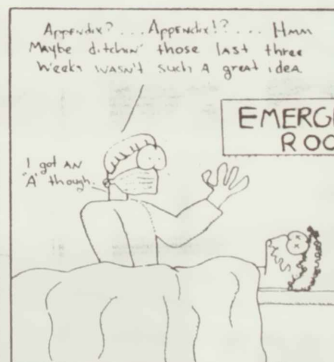 Appendix?... Appendix!?... Hmm
Maybe ditchin' those last three
weeks wasn't such a great idea
EMERG
ROO
I got AN
"A" though.